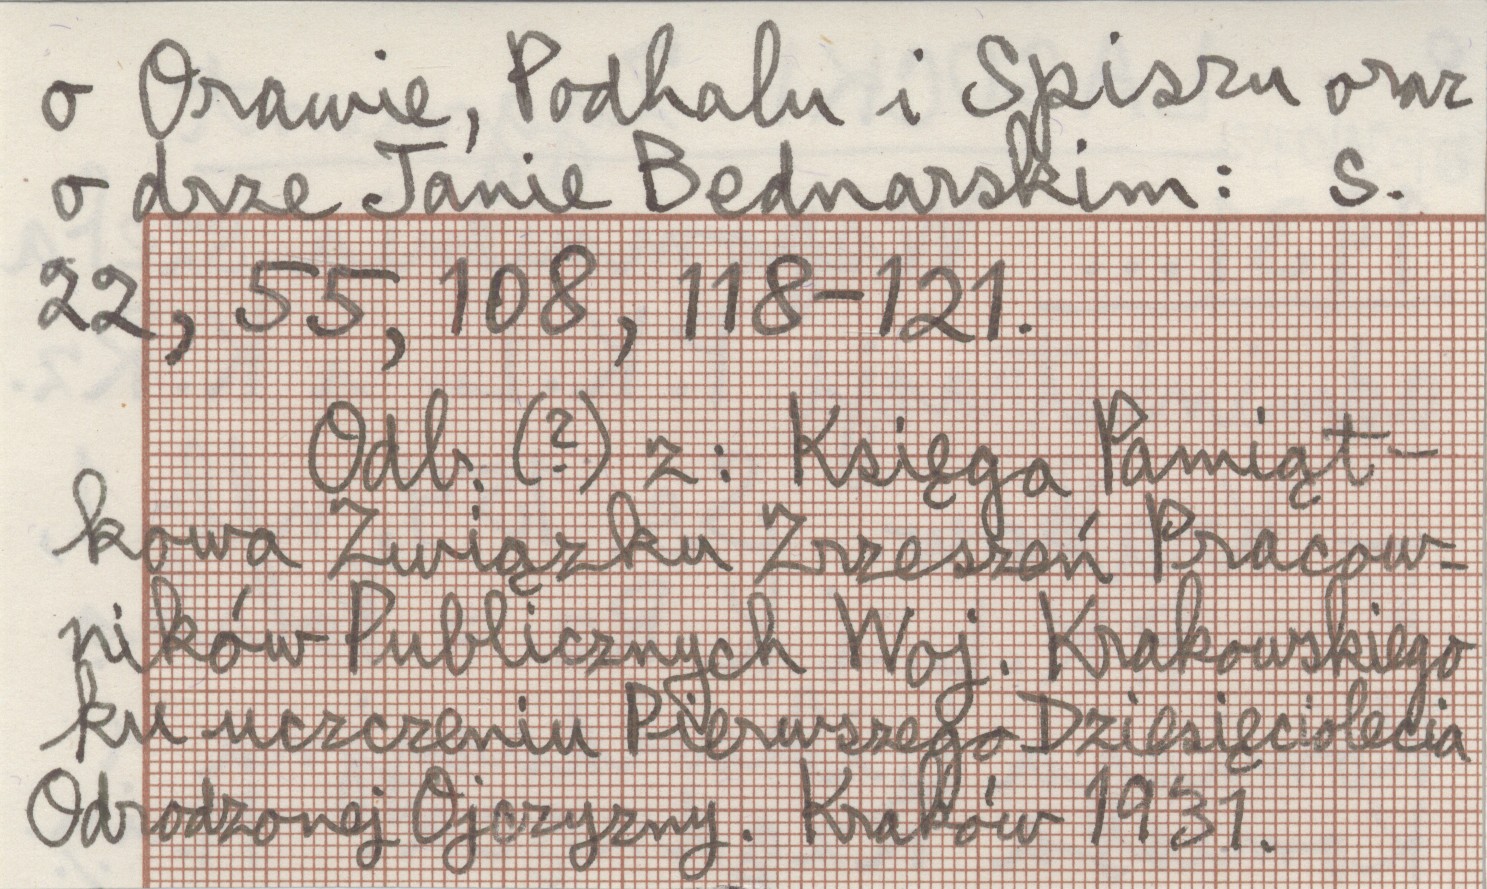 o Orawie, Podhalu i Spiszu oraz
o drze Janie Bednarskim: s.
22, 55, 108, 118-121.
Odb. (?) z: Księga Pamiąt-
kowa Związku Zrzeszeń Pracow-
ników Publicznych Woj. Krakowskiego
ku uczczeniu Pierwszego Dziesięciolecia
Odrodzonej Ojczyzny. Kraków 1931.